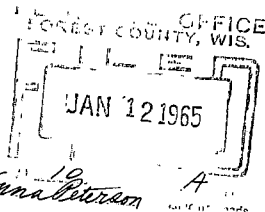 OFFICE
FOREST COUNTY, WIS.
JAN 12 1965
10 A
Peterson